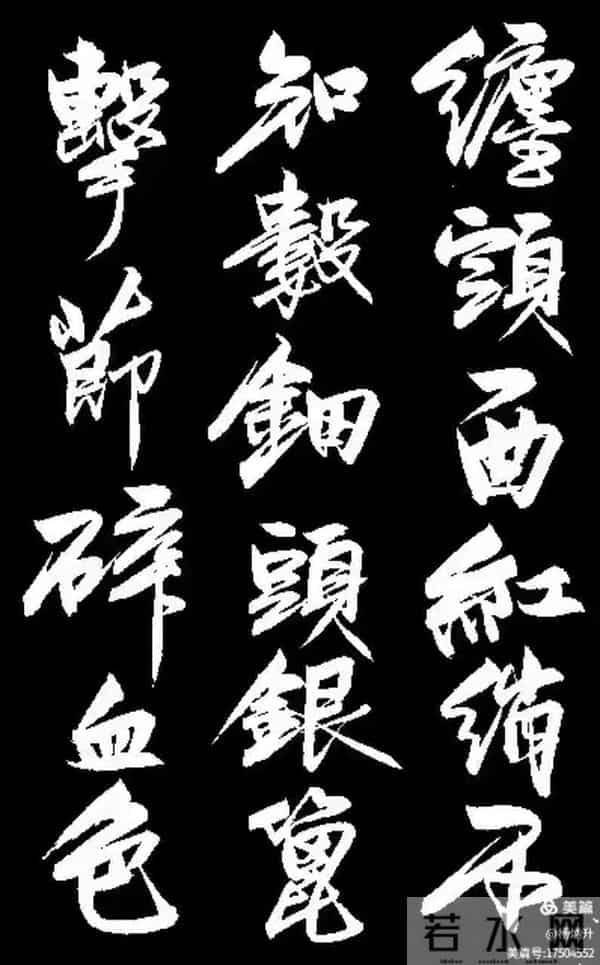 纏頭一曲紅綃不
知數鈿頭銀篦
擊節碎血色
美篇
若水网
美篇号:17504552